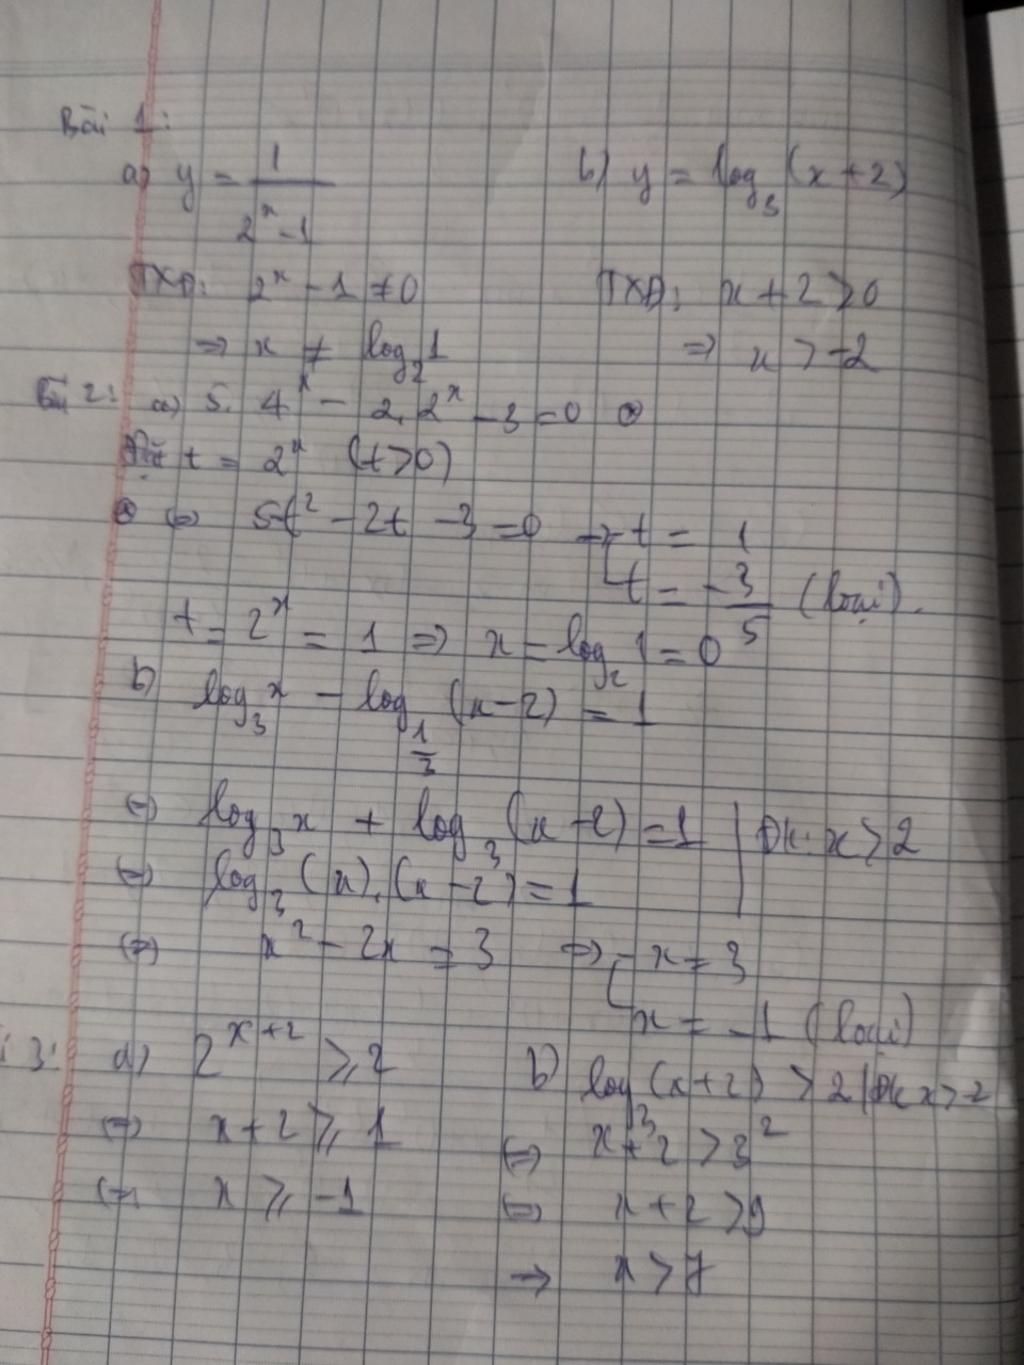 Bài 1:
a) y = 1/(2^x - 1)
b) y = log_3 (x + 2)
TXĐ: 2^x - 1 ≠ 0
TXĐ: x + 2 > 0
=> x ≠ log_2 1
=> x > -2
Bài 2: a) 5. 4^x - 2. 2^x - 3 = 0 (*)
Đặt t = 2^x (t > 0)
(*) <=> 5t^2 - 2t - 3 = 0 → [ t = 1
t = -3/5 (loại).
t = 2^x = 1 => x = log_2 1 = 0
b) log_3 x - log_{1/3} (x - 2) = 1
<=> log_3 x + log_3 (x - 2) = 1 | Đk: x > 2
<=> log_3 (x).(x - 2) = 1
<=> x^2 - 2x = 3 => [ x = 3
x = -1 (loại)
i 3: a) 2^{x+2} ⩾ 2
b) log_3 (x + 2) > 2 | Đk x > -2
<=> x + 2 ⩾ 1
<=> x + 2 > 3^2
<=> x ⩾ -1
<=> x + 2 > 9
→ x > 7